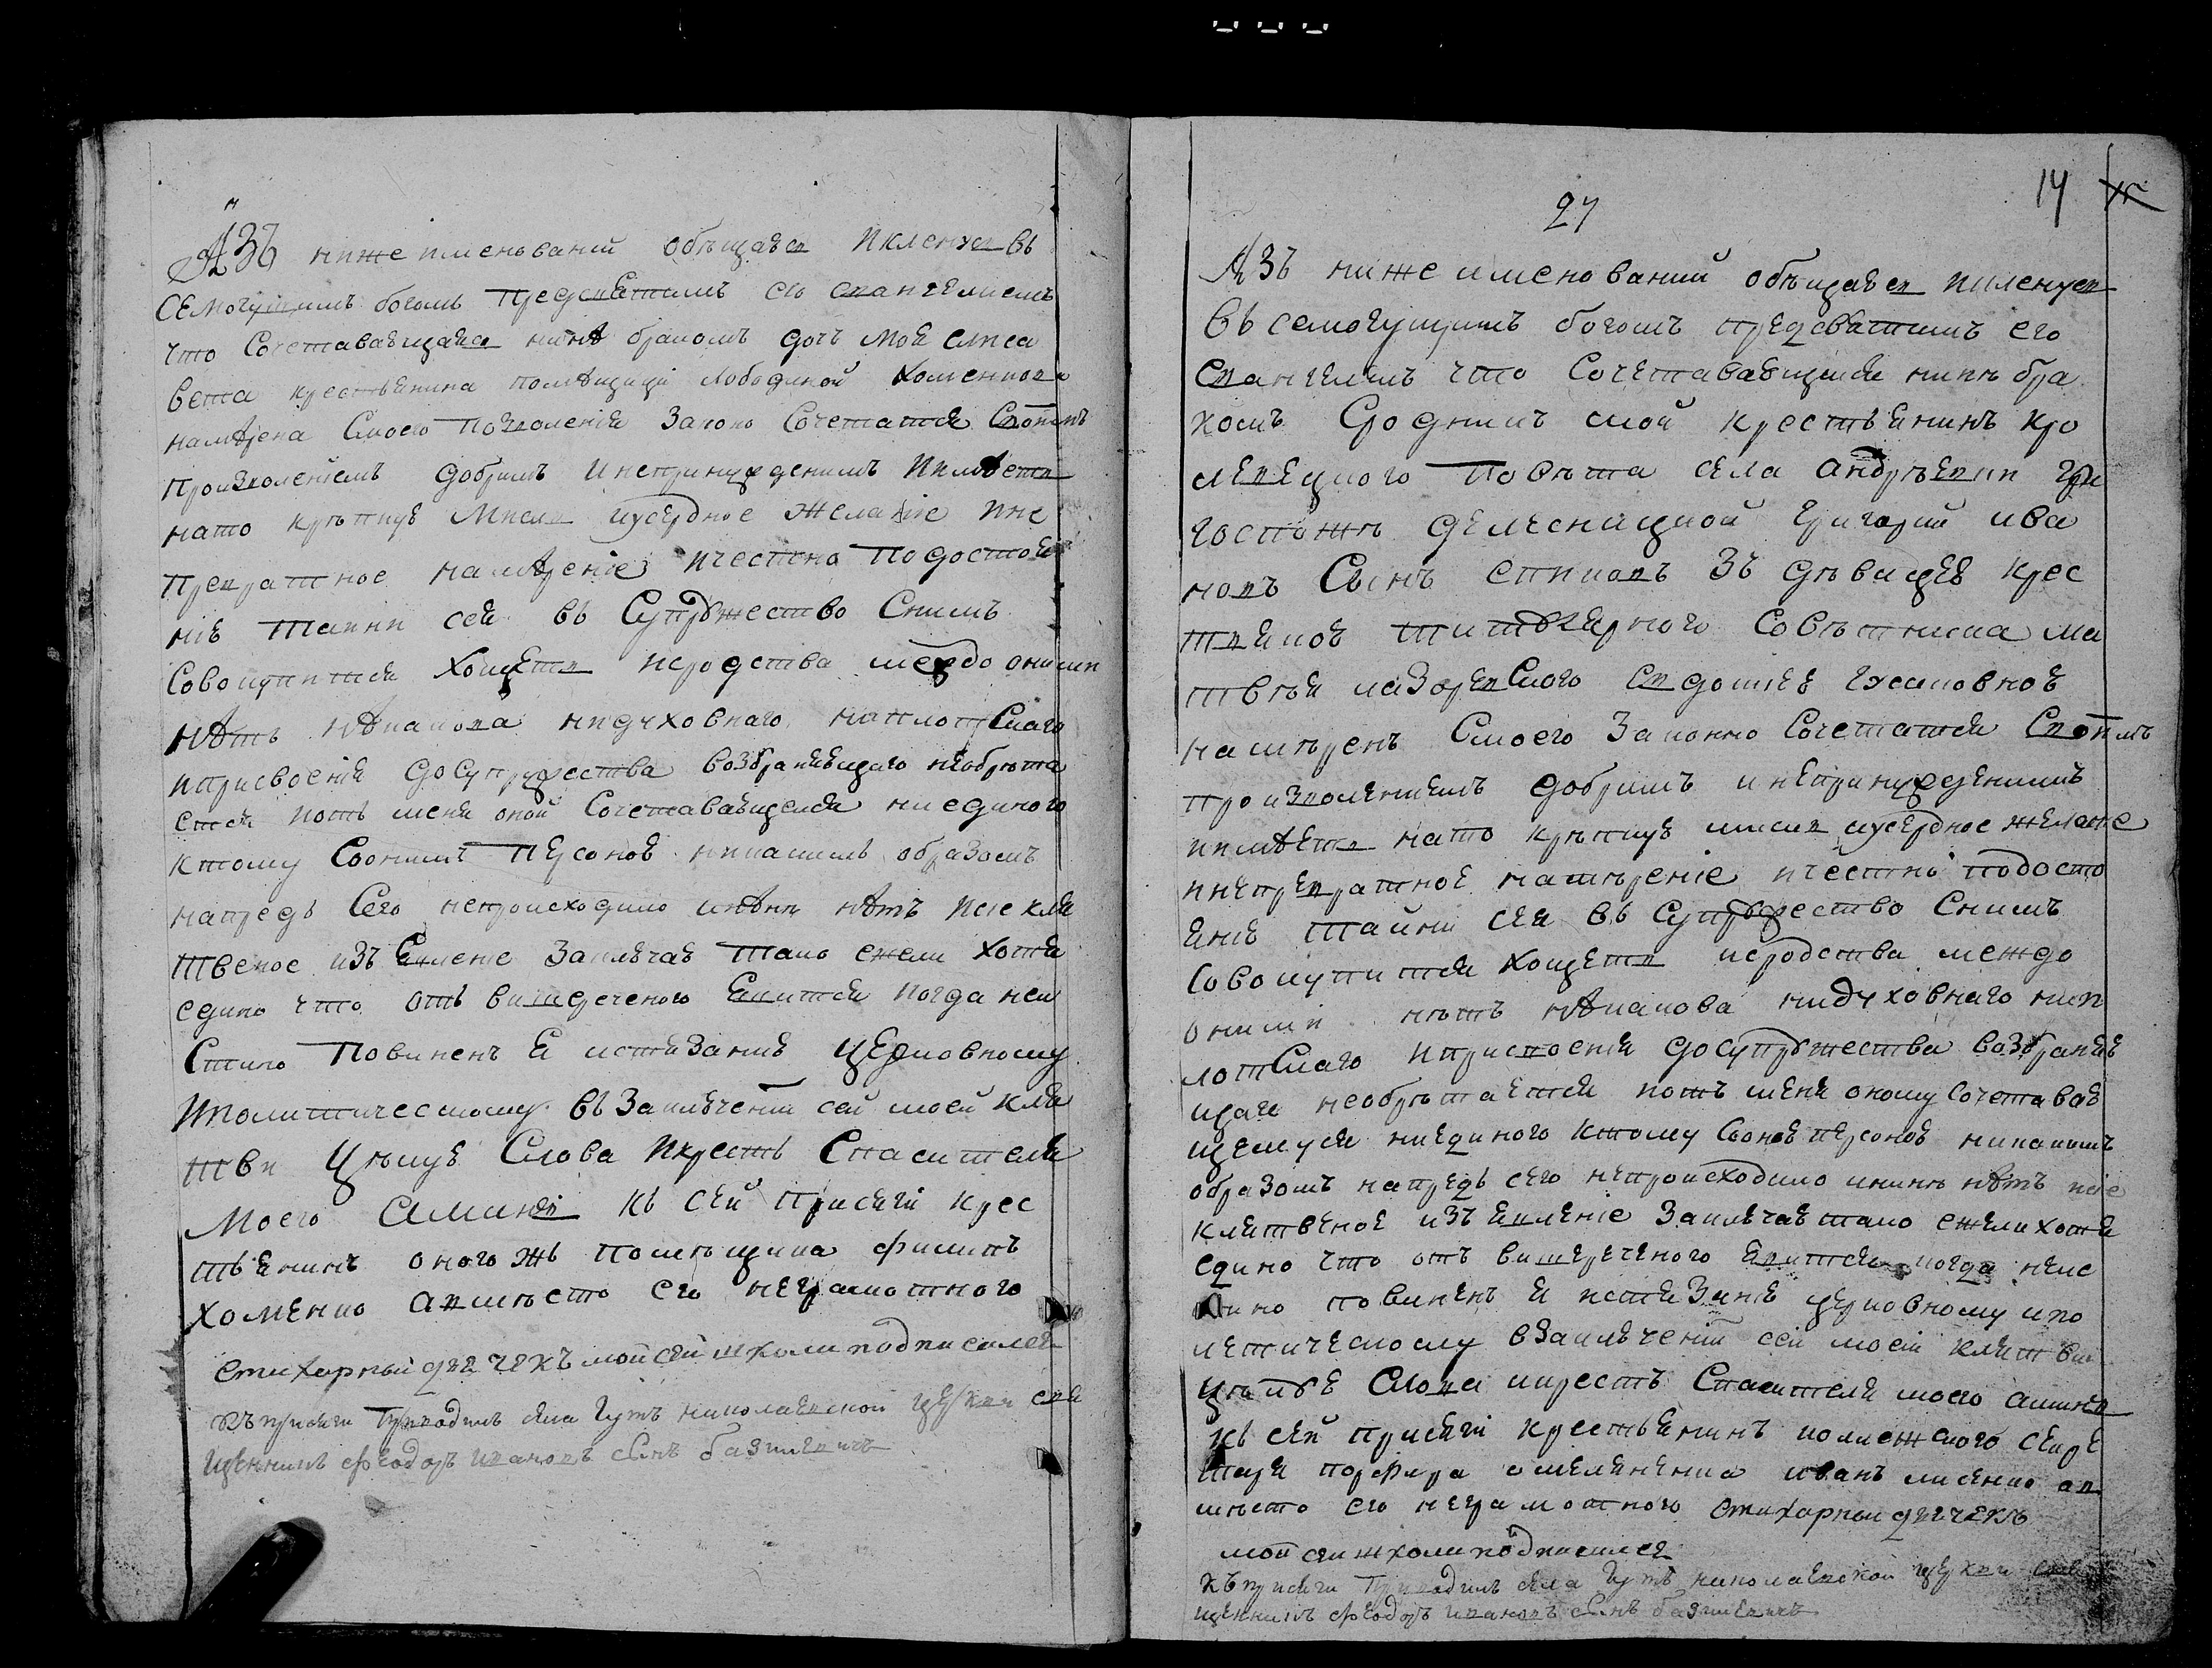 Азъ нижеименований обѣщаюся и кленуся вь
семогущимъ богомъ предсвятимъ его евангелиемъ
что сочетавающаяся нинѣ бракомъ дочь моя елиса
вета крестьянина помѣщици лободиной хоменкова
намѣрена смоего позволенія законо сочетатся своимъ
произволеніемъ добримъ и непринужденимъ и имѣетъ
нато крѣпкую мисль иусердное желаніе ине
превратное намѣреніе ичестно подостоя
нію таини сея вь супружество снимъ
совокупится хощетъ исродства междо оними
нѣть нѣкакова нидуховнаго ниплотскаго
иприсвоенія досупружества возбраняющаго необрѣта
ется иоть меня оной сочетавающеися ниединого
ктому соонимъ персоною никакимъ образомъ
напредь сего непроисходило инѣнѣ нѣтъ исіе кля
твеное изъявленіе заключаю тако ежели хотя
едино что оть вишереченого явится когда неи
стино повиненъ я истязанию церковному
иполитическому вь заключеніи сей моей кля
тви цѣлую слова икресть спасителя
моего аминь кь сей присяги крес
тьянинъ оногожь помѣщика филипъ
хоменко авмѣсто его неграмотного
стихарный дячекъ моисѣи школи подписался
къ присяги приводилъ села гутъ николаевской церкви свя
щенникъ феодоръ ивановъ синъ базилевичъ
27
14
Азъ нижеименований обѣщаюся икленуся
вь семогущимъ богомъ предсвятимъ его
евангелиемъ что сочетавающийся нинѣ бра
комъ сродникъ мой крестьянинъ кро
левецкого повѣта села андрѣевки
госпожѣ григорий ива
новъ синъ зъ дѣвицею крес
тянкою титулярного совѣтника ма
твѣя лазоревского евдокиею
намѣренъ смоего законно сочетатся своимъ
произволениемъ добримъ инепринужденимъ
иимѣетъ нато крѣпкую мисль иусердное желание
инепревратное намѣреніе ичестно подосто
янию тайни сея вь супружество снимъ
совокупится хощетъ исродства междо
оними нѣтъ нѣкакова нидуховнаго нип
лотскаго иприсвоенія досупружества возбраняю
щаго необрѣтается иотъ меня оному сочетаваю
щемуся ниединого ктому соною персоною никакимъ
образомъ напредь сего непроисходило ининѣ нѣтъ исіе
клятвеное изъявленіе заключаю тако ежели хотя
едино что отъ вишереченого явится когда неис
тино повиненъ я истязанию церковному ипо
летическому взаключеніи сей моеи клятви
цѣлую слова икрестъ спасителя моего аминь
кь сей присяги крестьянинъ колежского секре
таря порфира омеляненка иванъ лисенко ав
мѣсто его неграмотного стихарный дячекъ
моисѣи школи подписался
къ присяги приводилъ села гутъ николаевской церкви свя
щенникъ феодоръ ивановъ синъ базилевичъ